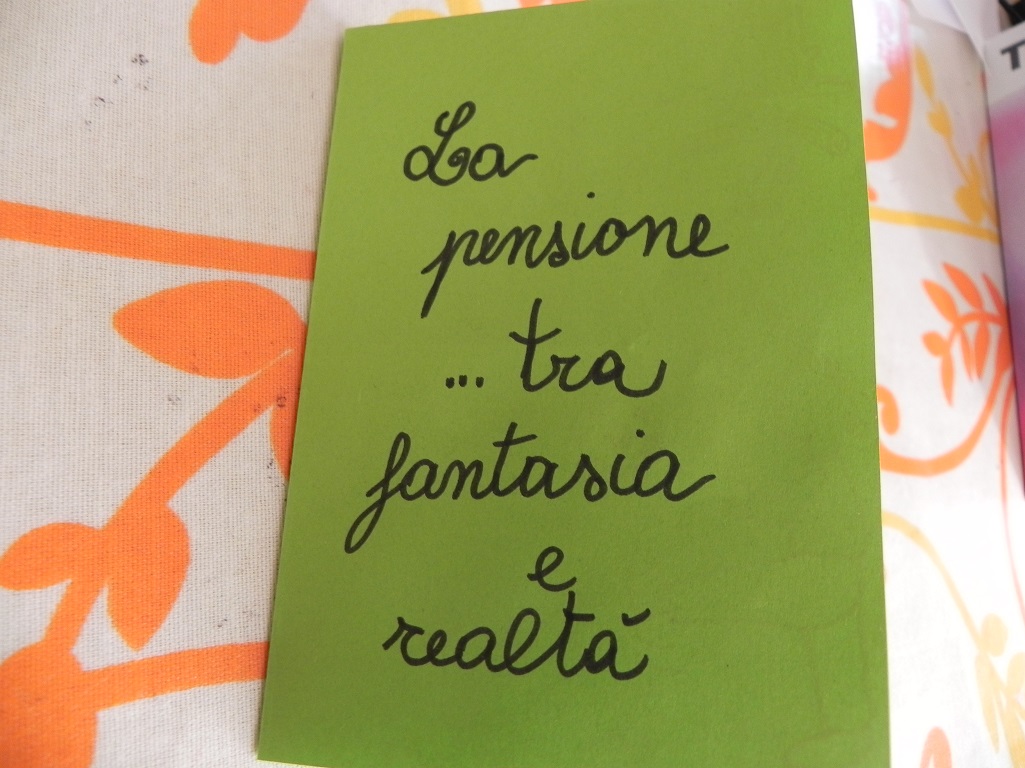 La
pensione
... tra
fantasia
e
realtà
T